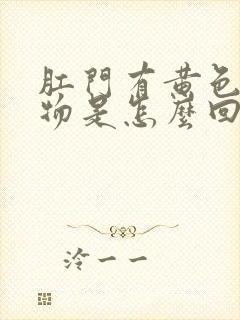 肛門有黄色
物是怎麼回
泠一一